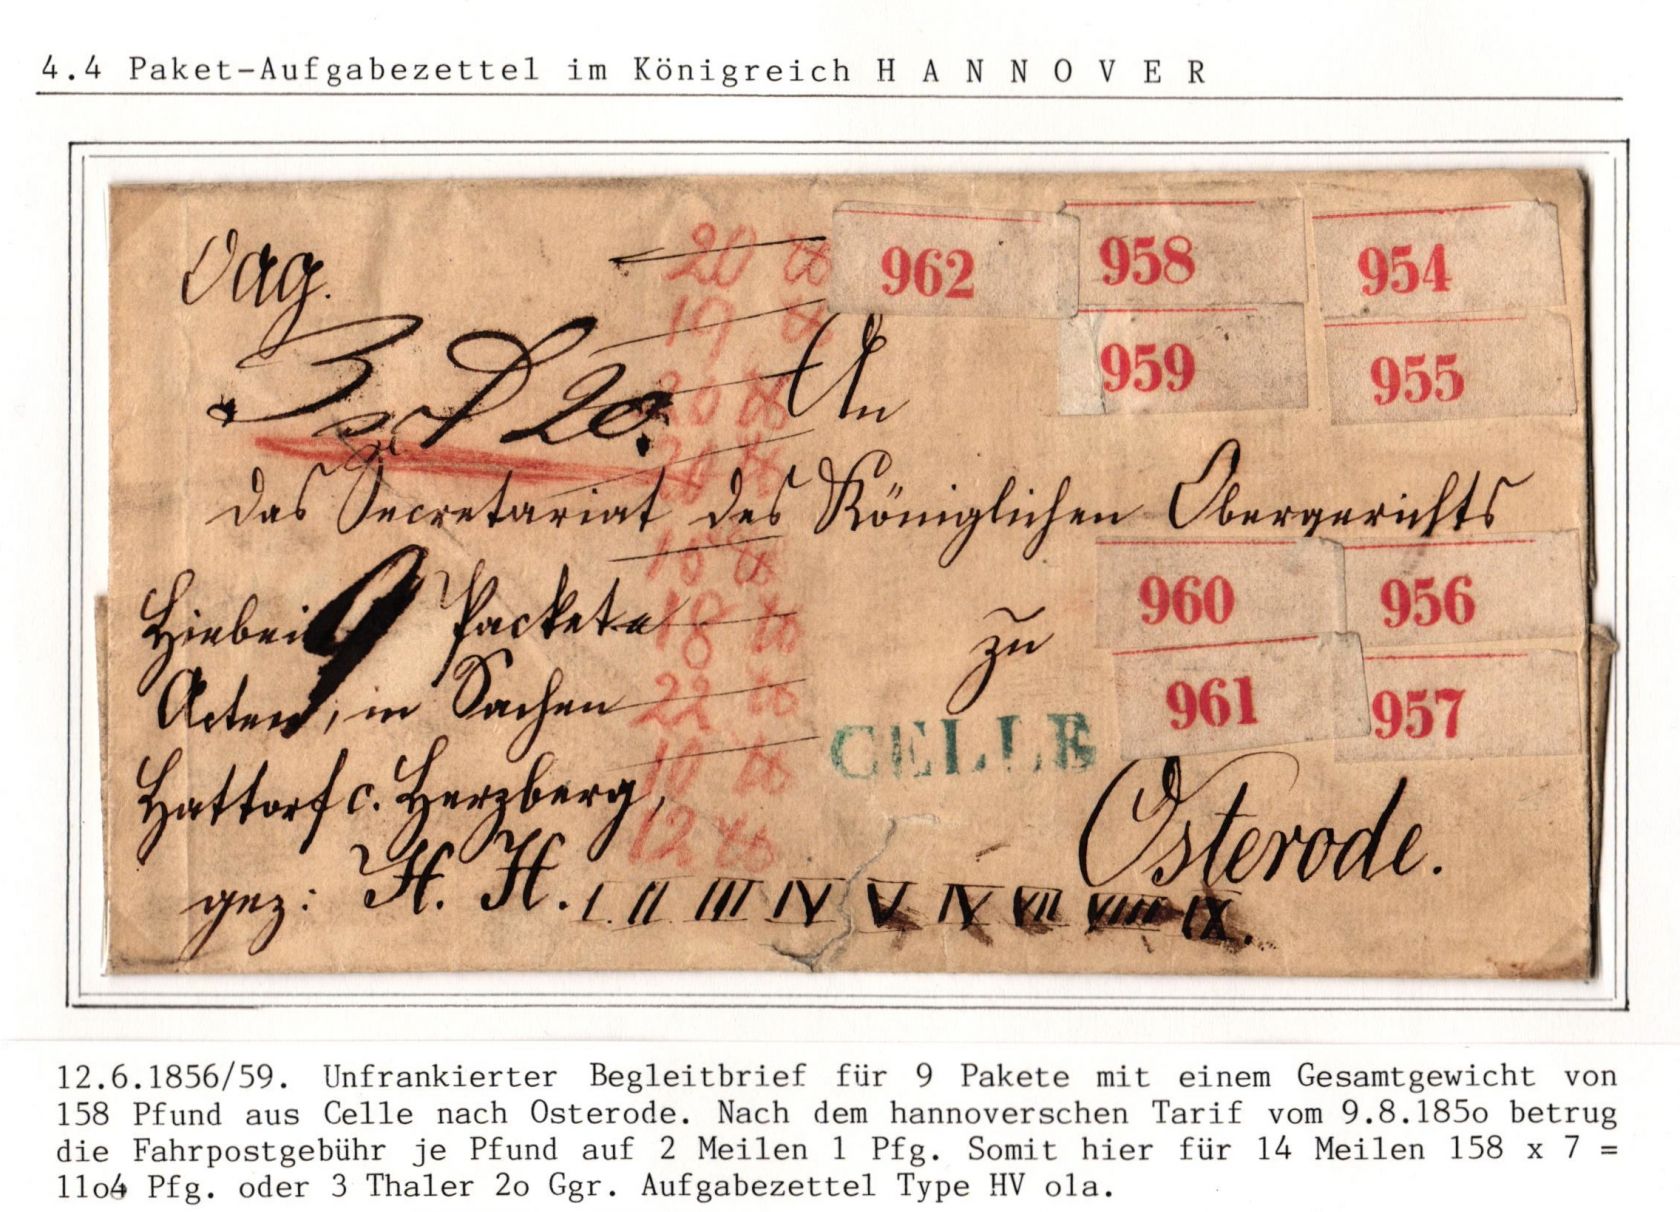 4.4 Paket-Aufgabezettel im Königreich H A N N O V E R
962 958 954
959 955
3 20.
An
das Secretariat des Königlichen Obergerichts
Hiebei 9 Packete
zu
960 956
Acten, in Sachen
961 957
CELLE
Hattorf c. Herzberg,
Osterode.
gez: H. H. I II III IV V IV VII VIII IX.
20
19
20
20
18
18
22
10
12
12.6.1856/59. Unfrankierter Begleitbrief für 9 Pakete mit einem Gesamtgewicht von
158 Pfund aus Celle nach Osterode. Nach dem hannoverschen Tarif vom 9.8.185o betrug
die Fahrpostgebühr je Pfund auf 2 Meilen 1 Pfg. Somit hier für 14 Meilen 158 x 7 =
11o4 Pfg. oder 3 Thaler 2o Ggr. Aufgabezettel Type HV o1a.